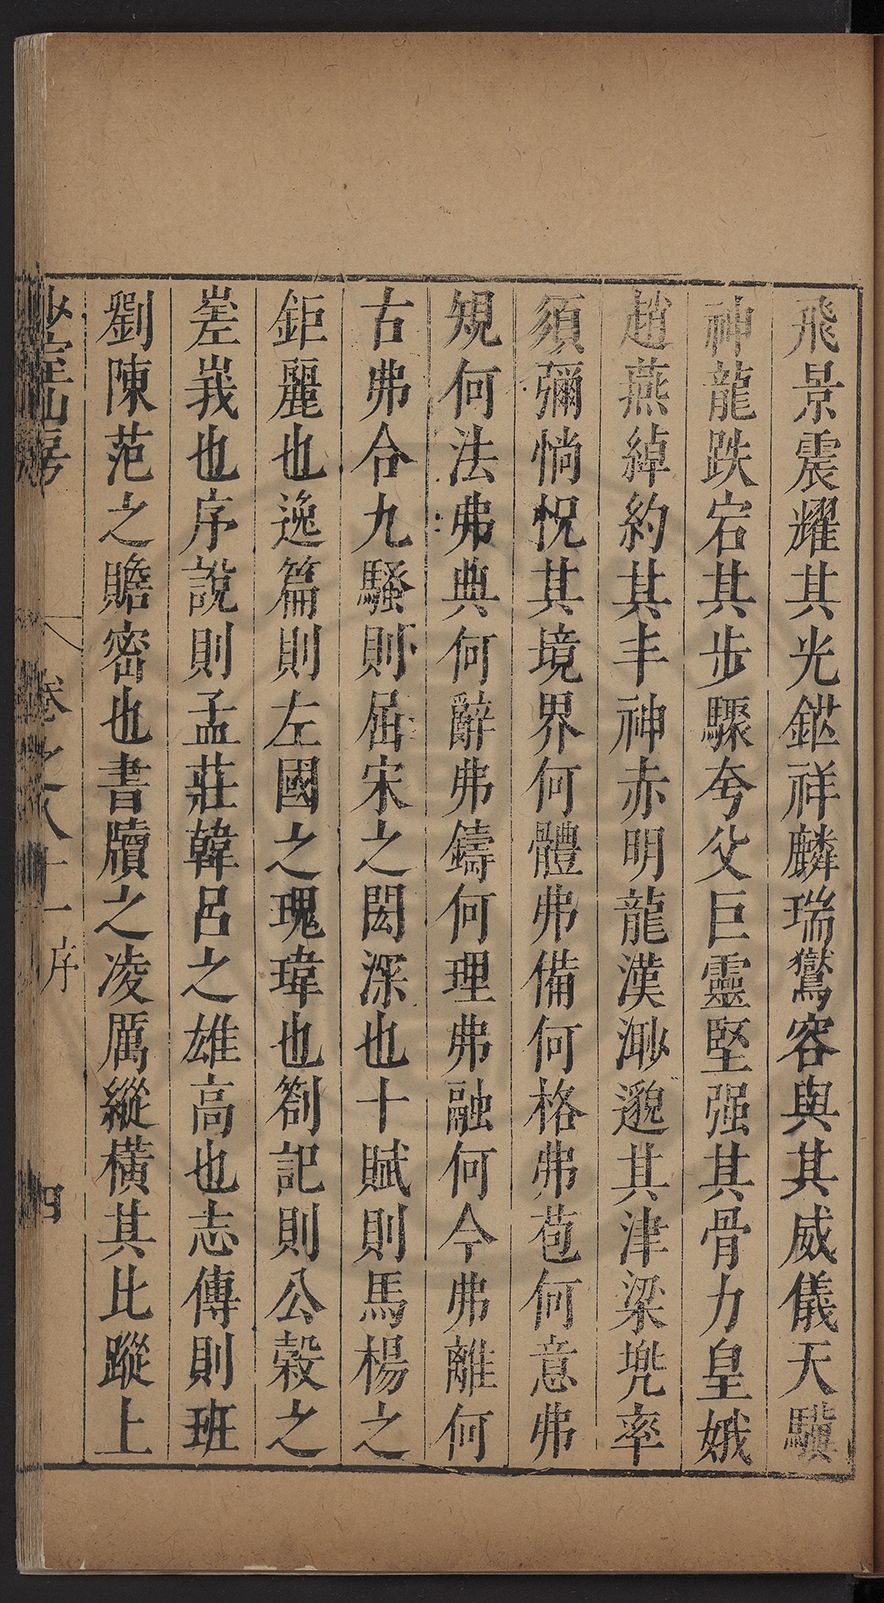 飛景震耀其光鋩祥麟瑞鸑容與其威儀天驥
神龍跌宕其步驟夸父巨靈堅强其骨力皇娥
趙燕綽約其丰神赤明龍漢渺邈其津梁兠率
須彌惝怳其境界何體弗備何格弗苞何意弗
規何法弗典何辭弗鑄何理弗融何今弗離何
古弗合九騷則屈宋之閎深也十賦則馬楊之
鉅麗也逸篇則左國之瑰瑋也劄記則公榖之
嵳峩也序說則孟莊韓呂之雄高也志傳則班
劉陳范之贍密也書牘之凌厲縱橫其比蹤上
少室山房 卷之八十一序 四